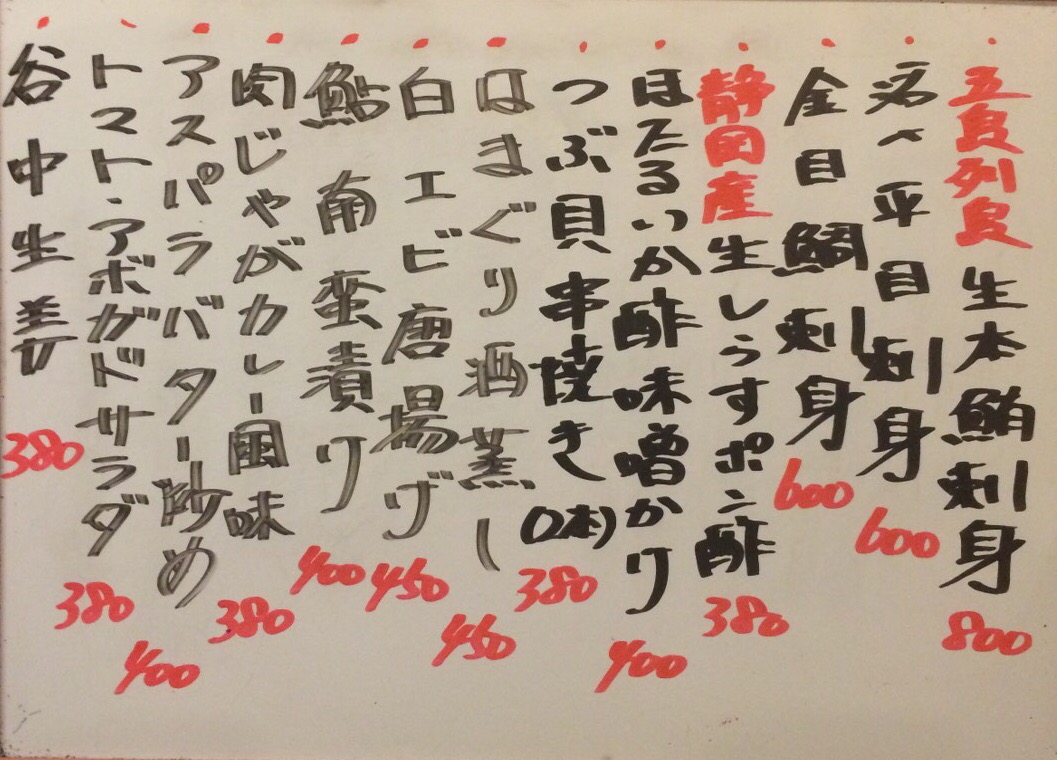 五島列島生本鮪刺身 800
活〆平目刺身 600
金目鯛刺身 600
静岡産生しらすポン酢 380
ほたるいか酢味噌かけ 400
つぶ貝串焼き(2本) 380
はまぐり酒蒸し 450
白エビ唐揚げ 450
鮎南蛮漬け 400
肉じゃがカレー風味 380
アスパラバター炒め 400
トマト・アボガドサラダ 380
谷中生姜 380